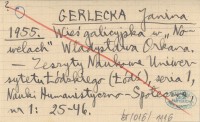 GERLECKA Janina
1955. Wieś galicyjska w „No-
welach" Władysława Orkana.
– Zeszyty Naukowe Uniwer-
sytetu Łódzkiego (Łódź), seria 1,
Nauki Humanistyczno-Społecz.
nr 1: 25-46.